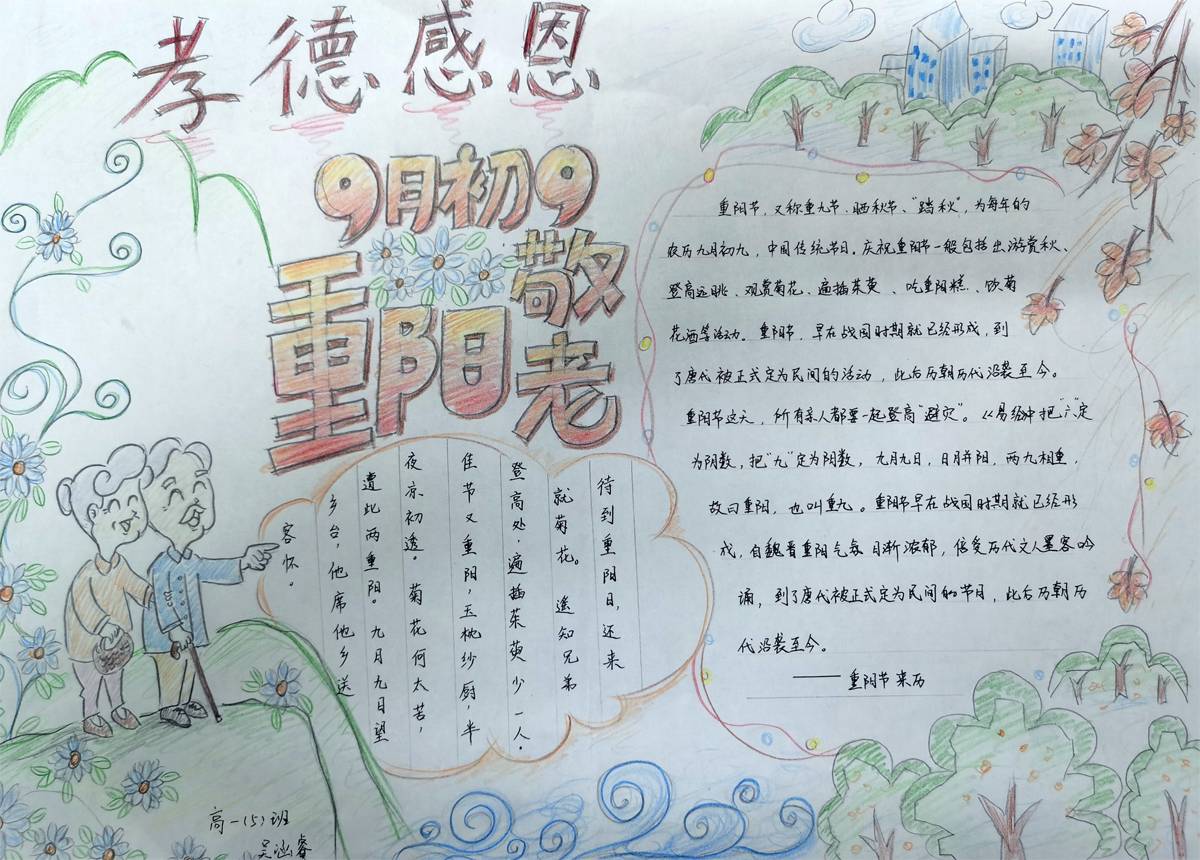 孝德感恩
9月初9
重阳敬老
重阳节，又称重九节、晒秋节、"踏秋"，为每年的
农历九月初九，中国传统节日。庆祝重阳节一般包括出游赏秋、
登高远眺、观赏菊花、遍插茱萸、吃重阳糕、饮菊
花酒等活动。重阳节，早在战国时期就已经形成，到
了唐代被正式定为民间的活动，此后历朝历代沿袭至今。
重阳节这天，所有亲人都要一起登高"避灾"。《易经》中把"六"定
为阴数，把"九"定为阳数，九月九日，日月并阳，两九相重，
故曰重阳，也叫重九。重阳节早在战国时期就已经形
成，自魏晋重阳气氛日渐浓郁，倍受历代文人墨客吟
诵，到了唐代被正式定为民间的节日，此后历朝历
代沿袭至今。
——重阳节来历
待到重阳日，还来
就菊花。遥知兄弟
登高处，遍插茱萸少一人。
佳节又重阳，玉枕纱厨，半
夜凉初透。菊花何太苦，
遭此两重阳。九月九日望
乡台，他席他乡送
客怀。
高一(5)班
吴涵睿